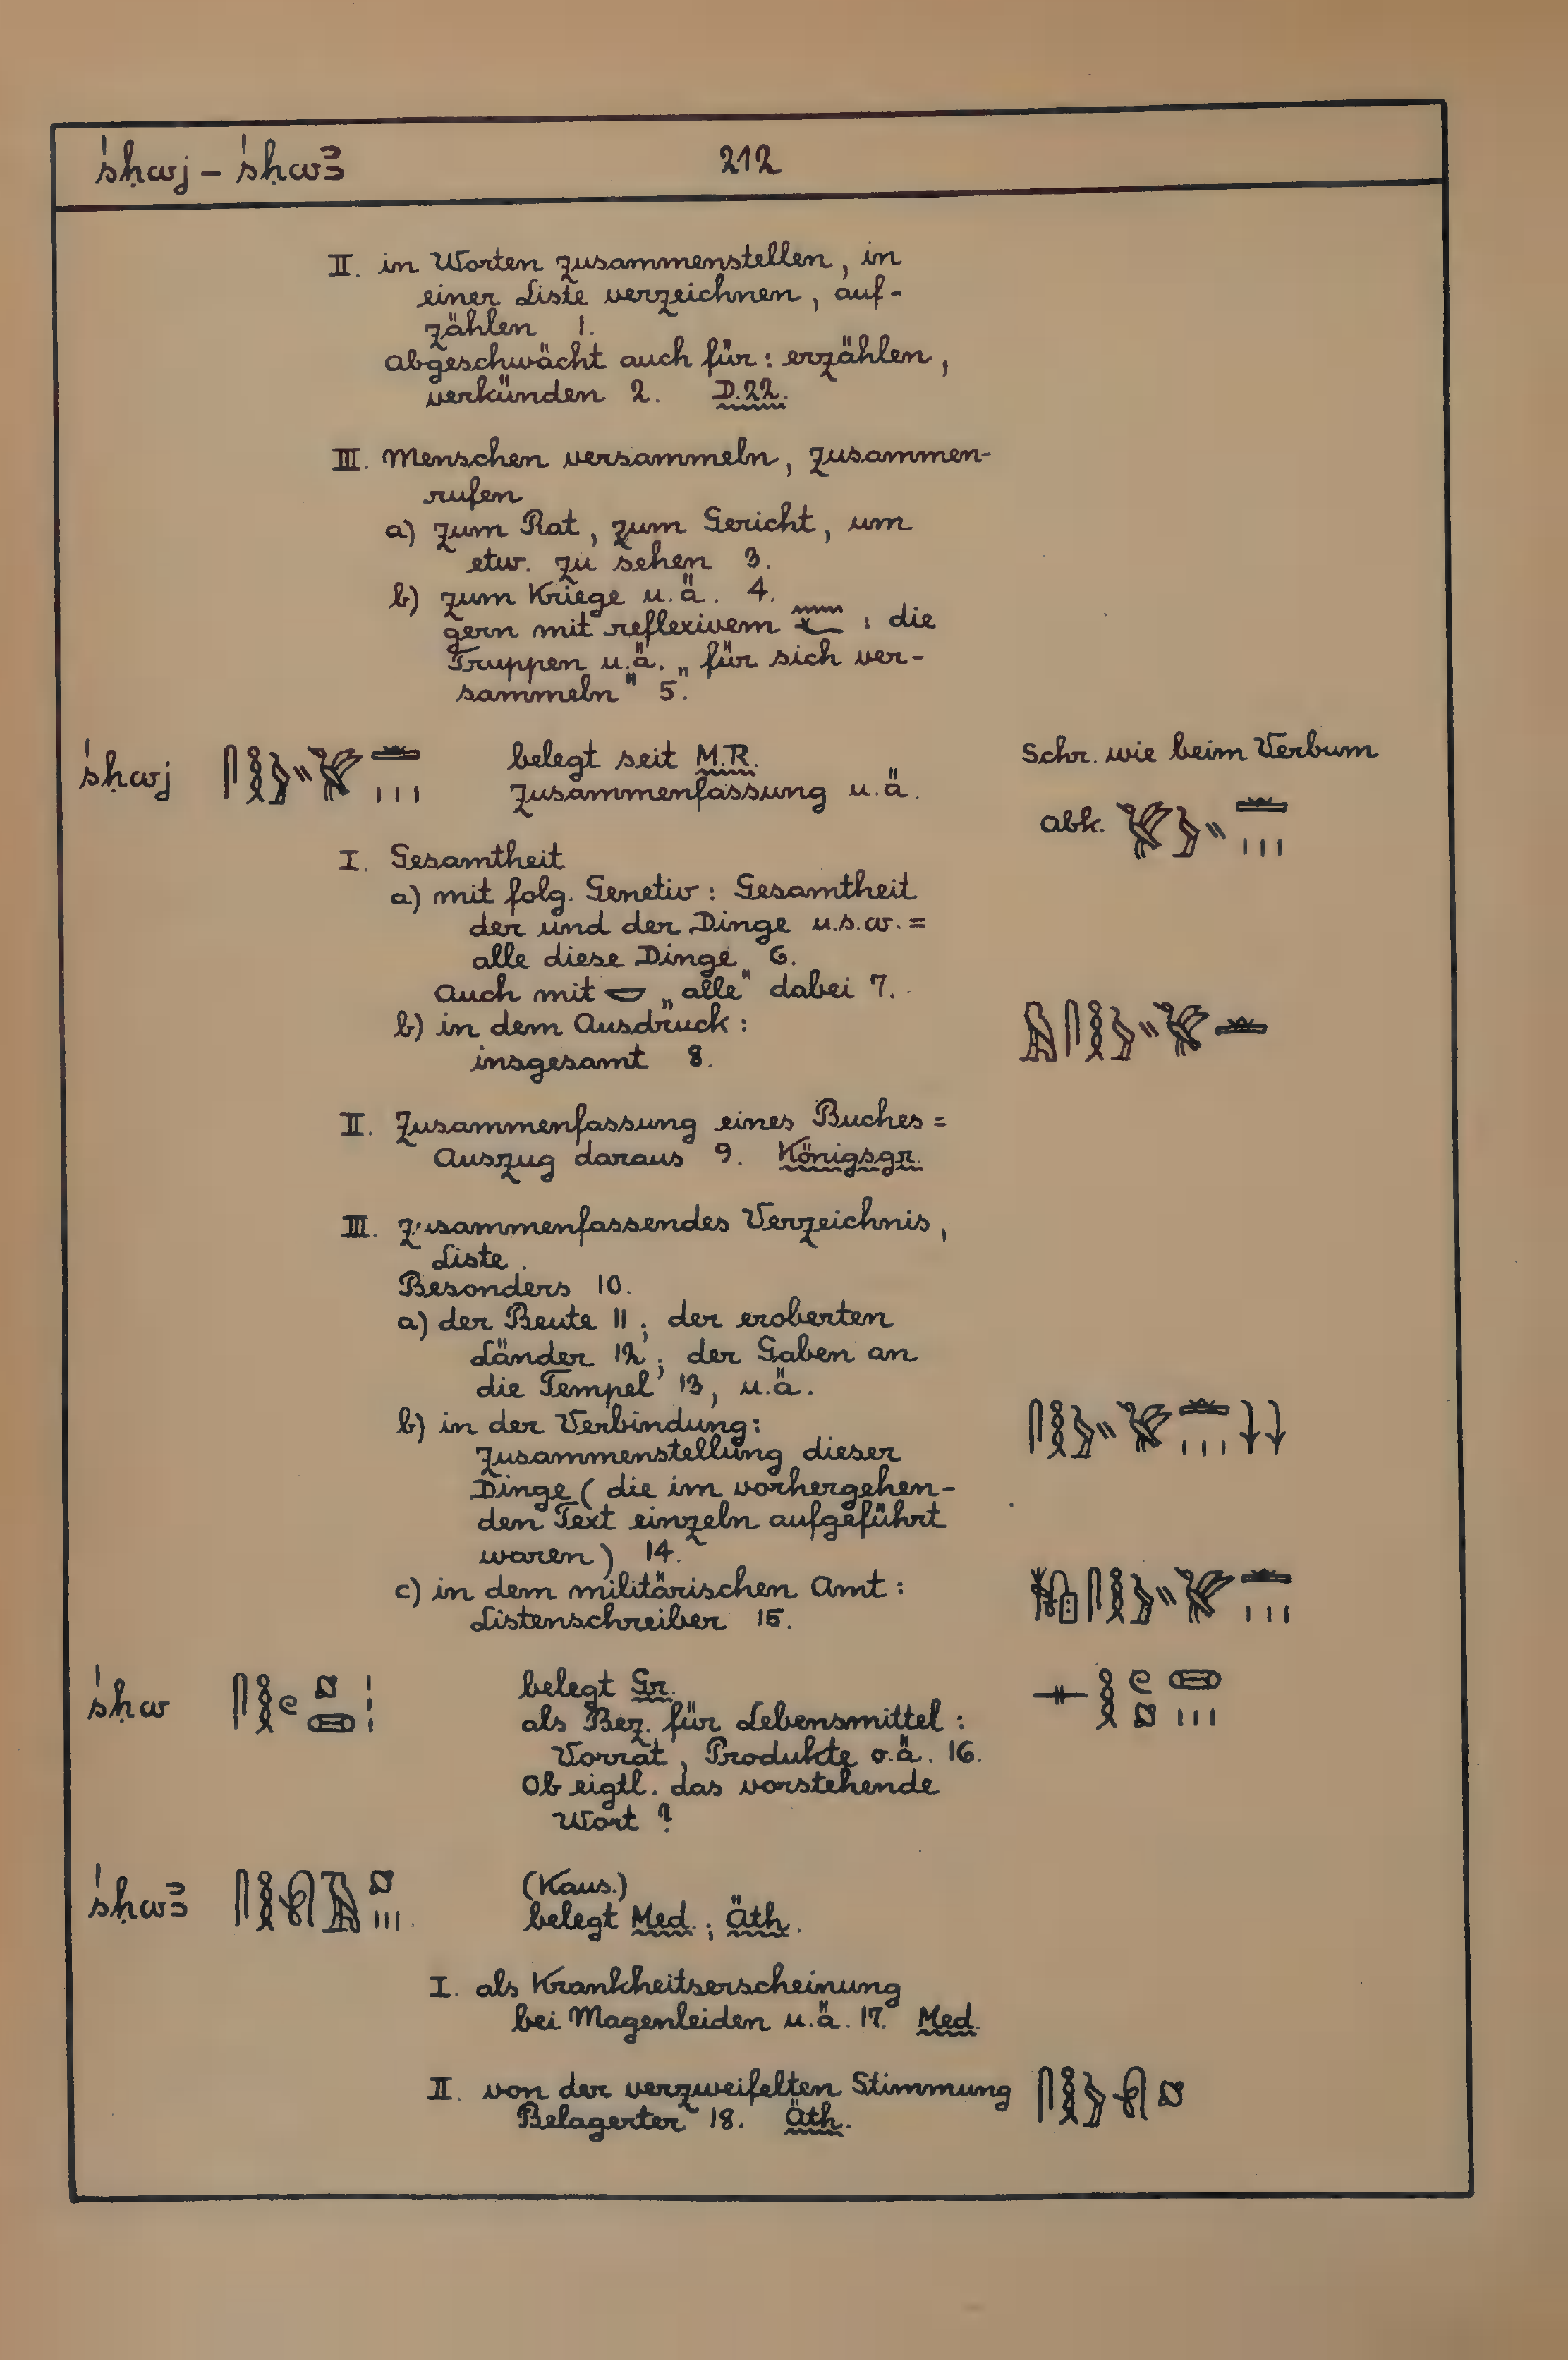 śḥwj – śḥwꜣ 212
II. in Worten zusammenstellen, in
einer Liste verzeichnen, auf-
zählen 1.
abgeschwächt auch für: erzählen,
verkünden 2. D.22.
III. Menschen versammeln, zusammen-
rufen
a) zum Rat, zum Gericht, um
etw. zu sehen 3.
b) zum Kriege u.ä. 4.
gern mit reflexivem : die
Truppen u.ä. „für sich ver-
sammeln" 5.
śḥwj belegt seit M.R. Schr. wie beim Verbum
Zusammenfassung u.ä.
abk.
I. Gesamtheit
a) mit folg. Genetiv: Gesamtheit
der und der Dinge u.s.w. =
alle diese Dinge 6.
Auch mit 𓎟 „alle" dabei 7.
b) in dem Ausdruck:
insgesamt 8.
II. Zusammenfassung eines Buches =
Auszug daraus 9. Königsgr.
III. zusammenfassendes Verzeichnis,
Liste.
Besonders 10.
a) der Beute 11; der eroberten
Länder 12; der Gaben an
die Tempel 13, u.ä.
b) in der Verbindung:
Zusammenstellung dieser
Dinge (die im vorhergehen-
den Text einzeln aufgeführt
waren) 14.
c) in dem militärischen Amt:
Listenschreiber 15.
śḥw belegt Gr.
als Bez. für Lebensmittel:
Vorrat, Produkte o.ä. 16.
Ob eigtl. das vorstehende
Wort?
śḥwꜣ (Kaus.)
belegt Med.; Äth.
I. als Krankheitserscheinung
bei Magenleiden u.ä. 17. Med.
II. von der verzweifelten Stimmung
Belagerter 18. Äth.